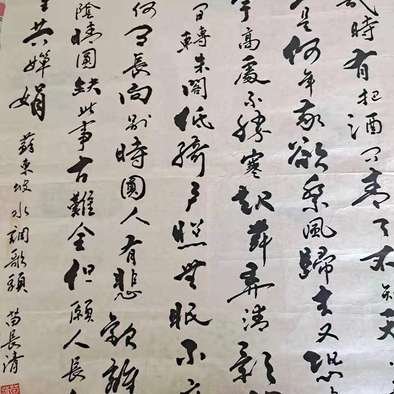 時有把酒问青天不知天
是何年我欲乘風歸去又恐
宇高處不勝寒起舞弄清影
轉朱閣低綺户照無眠不应
何事长向别時圓人有悲歡離
陰晴圓缺此事古難全但願人長
里共嬋娟
蘇東坡水调歌頭 苗長清